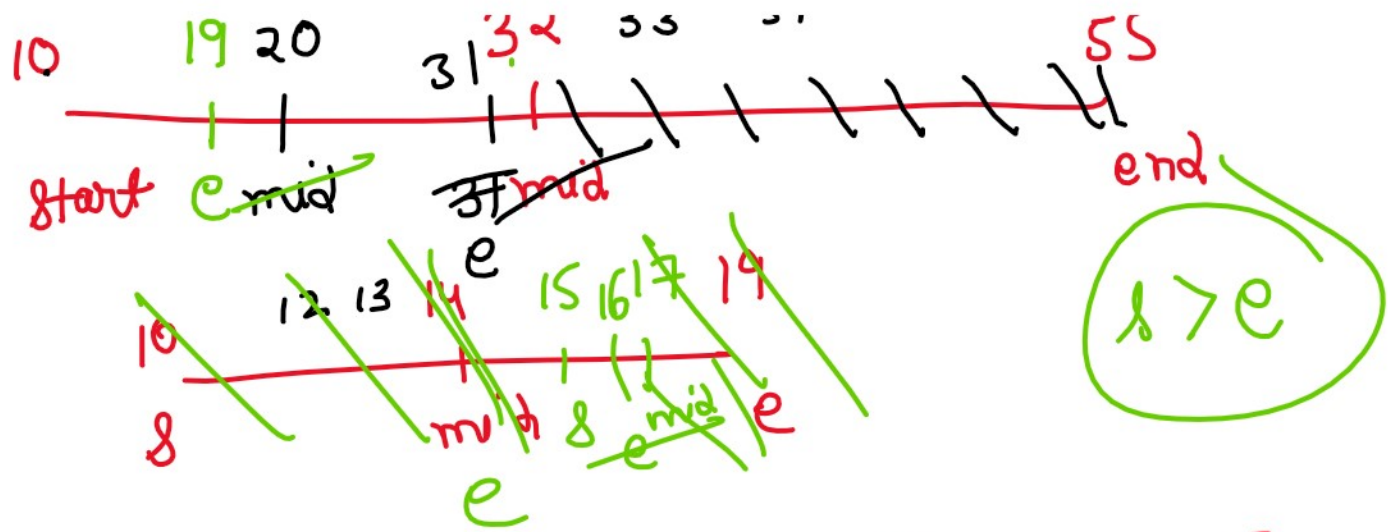 10 19 20 31 32 55
start e mid 31 mid end
e
10 12 13 14 15 16 17 19
s mid s e mid e
e
s > e